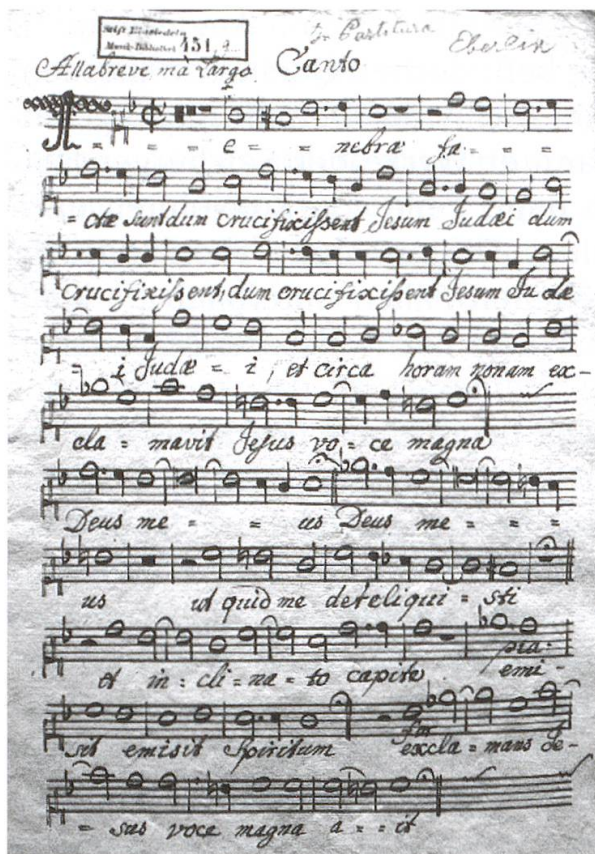 Stift Einsiedeln
Musik-Bibliothek 451,9
In Partitura
Eberlin
Allabreve mà Largo. Canto
T = = = e = = nebræ fa = = =
= ctæ sunt dum crucifixissent Jesum Judæi dum
crucifixissent, dum crucifixissent Jesum Judæ
= i Judæ = i, et circa horam nonam ex-
cla = mavit Jesus vo = ce magna
Deus me = = us Deus me = = =
us ut quid me dereliqui = sti
pia:
et in = cli = na = to capite emi-
sit emisit Spiritum excla = mans Je-
= sus voce magna a = = it